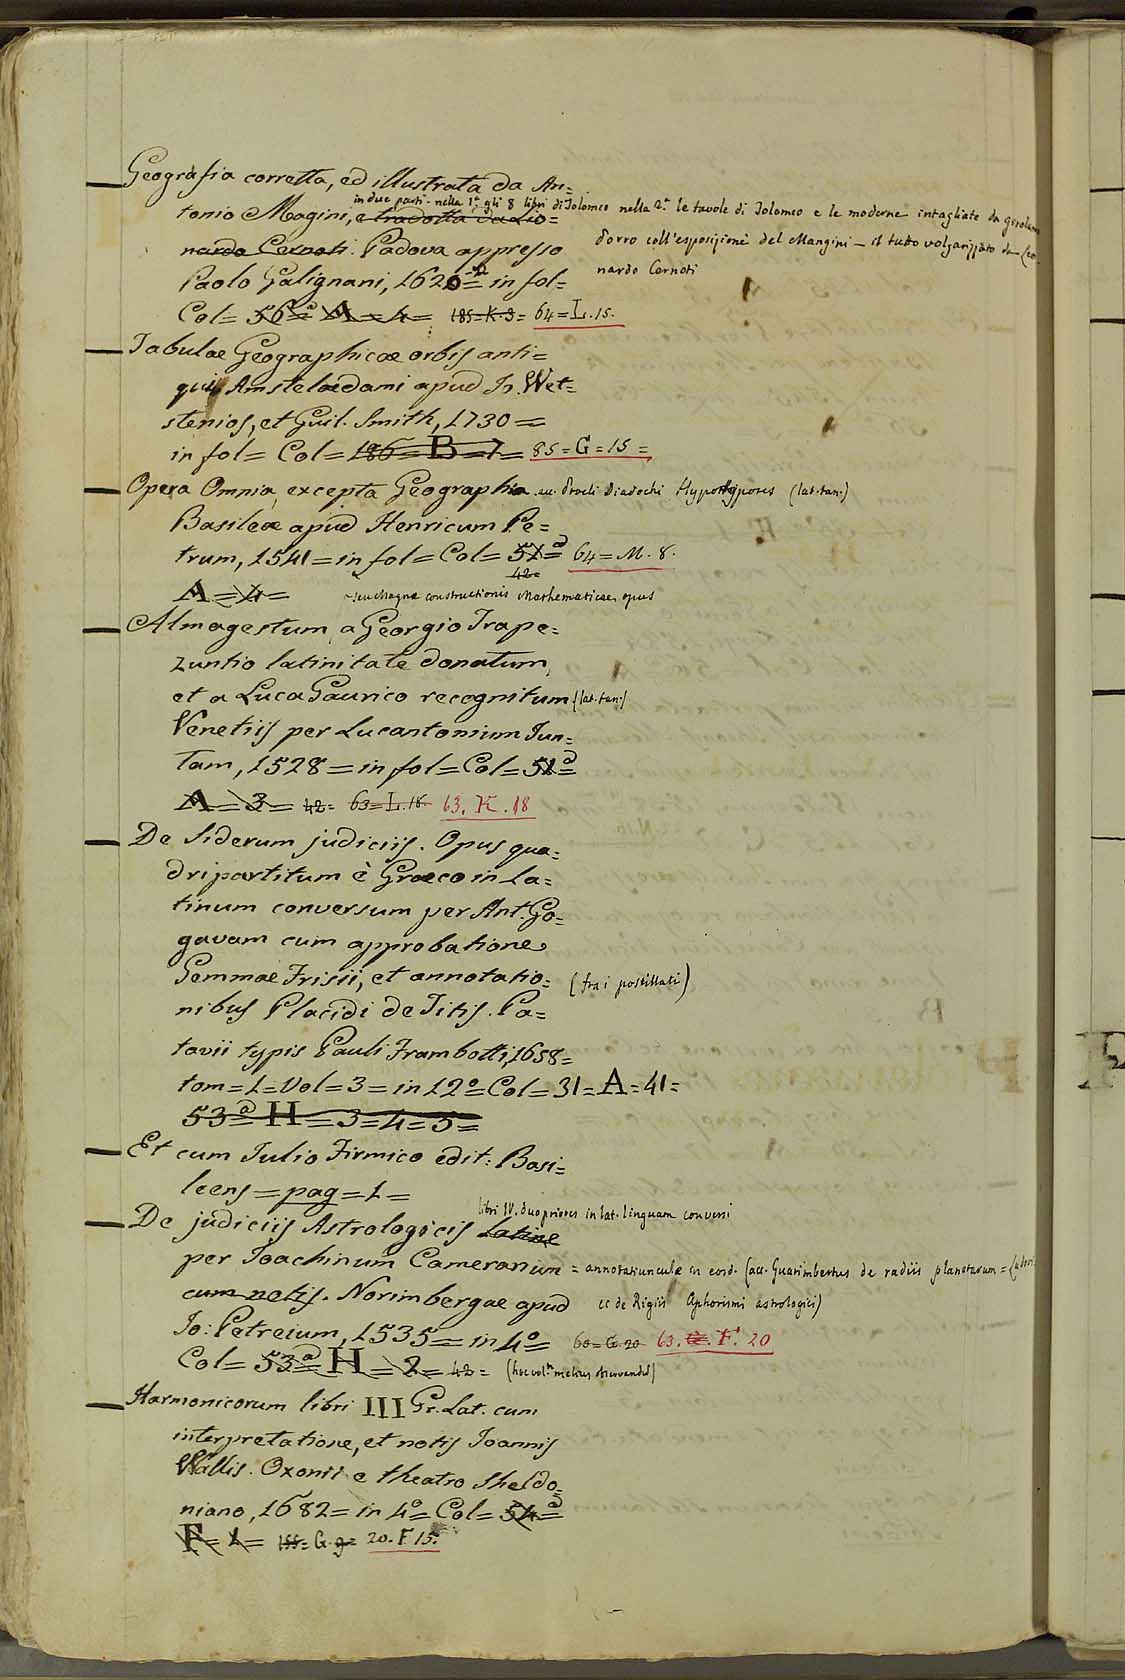 Geografia corretta, ed illustrata da An=
in due parti - nella 1.a gli 8 libri di Tolomeo nella 2.a le tavole di Tolomeo e le moderne intagliate da Girolamo
tonio Magini, e tradotta da Lio=
Porro coll'esposizione del Mangini - il tutto volgarizzato da Leo-
nardo Cernoti. Padova appresso
nardo Cernoti
Paolo Galignani, 1620 = in fol=
Col= 56a= A = 4 = 185=K.3= 64=L.15.
Tabulae Geographicae orbis anti=
quis Amstelaedami apud Js. Wet=
stenios, et Guil. Smith, 1730 =
in fol= Col= 186= B =7= 85=G=15=
Opera Omnia, excepta Geographia acc. Procli Diadochi Hypotyposes (lat. tan.)
Basileae apud Henricum Pe=
trum, 1541= in fol= Col= 51a= 64=M.8.
42=
A=4=
seu Magnae constructionis Mathematicae opus
Almagestum, a Georgio Trape=
zuntio latinitate donatum,
et a Luca Gaurico recognitum (lat. tan.)
Venetiis per Lucantonium Jun=
tam, 1528= in fol= Col= 51a=
A=3= 42= 63=L.18. 63. K. 18
De Siderum judiciis. Opus qua=
dripartitum è Graeco in La=
tinum conversum per Ant. Go=
gavam cum approbatione
Gemmae Frisii, et annotatio= (fra i postillati)
nibus Placidi de Titis. Pa=
tavii typis Pauli Frambotti, 1658=
tom=1=Vol=3= in 12o= Col= 31=A=41=
53a= H=3=4=5=
Et cum Julio Firmico edit: Basi=
leens= pag=1=
libri IV. duo priores in lat. linguam conversi
De judiciis Astrologicis Latine
per Joachinum Camerarium = annotatiunculae in eosd. (acc. Guarimbertus de radiis planetarum =
cum notis. Norimbergae apud ec de Rigiis Aphorismi astrologici)
Jo: Petreium, 1535= in 4o= 63=G.20 63. G. F. 20
Col= 53a= H=2= 42= (hoc vol.
Harmonicorum libri III Gr. Lat. cum
interpretatione, et notis Joannis
Wallis. Oxonii e theatro Sheldo=
niano, 1682= in 4o= Col= 54a=
F=1= 155=G.9= 20. F 15.